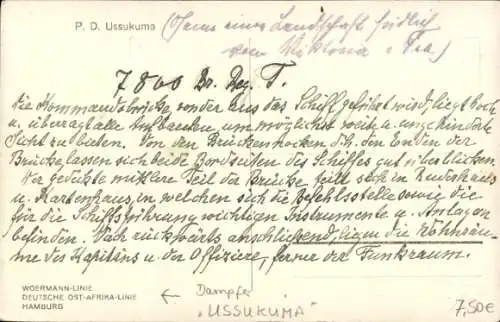 P. D. Ussukuma (Name einer Landschaft südlich
vom Viktoria - See)
7800 Br. Reg. T.
Die Kommandobrücke, von der aus das Schiff geführt wird, liegt hoch
u. überragt alle Aufbauten, um möglichst weite u. ungehinderte
Sicht zu bieten. Von den Brückennocken d.h. den Enden der
Brücke, lassen sich beide Bordseiten des Schiffes gut überblicken.
Der gedeckte mittlere Teil der Brücke teilt sich in Ruderhaus
u. Kartenhaus, in welchen sich die Befehlsstelle sowie die
für die Schiffsführung wichtigen Instrumente u. Anlagen
befinden. Nach rückwärts anschließend, liegen die Wohnräu-
me des Kapitäns u. der Offiziere, ferner der Funkraum.
WOERMANN-LINIE
DEUTSCHE OST-AFRIKA-LINIE
HAMBURG
← Dampfer
"USSUKUMA"
7,50€